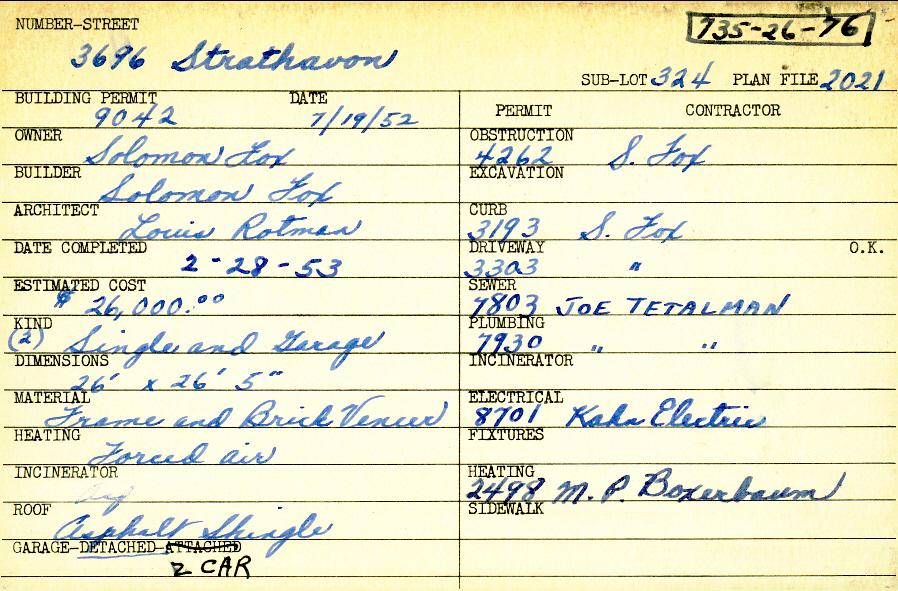 NUMBER-STREET
735-26-76
3696 Strathavon
SUB-LOT 324 PLAN FILE 2021
BUILDING PERMIT DATE
9042 7/19/52
OWNER
Solomon Fox
BUILDER
Solomon Fox
ARCHITECT
Louis Rotman
DATE COMPLETED
2-28-53
ESTIMATED COST
$ 26,000.00
KIND
(2) Single and Garage
DIMENSIONS
26' x 26' 5"
MATERIAL
Frame and Brick Veneer
HEATING
Forced air
INCINERATOR
ROOF
Asphalt Shingle
GARAGE-DETACHED-ATTACHED
2 CAR
PERMIT CONTRACTOR
OBSTRUCTION
4262 S. Fox
EXCAVATION
CURB
3193 S. Fox
DRIVEWAY O.K.
3303 "
SEWER
7803 JOE TETALMAN
PLUMBING
7930 " "
INCINERATOR
ELECTRICAL
8701 Kahn Electric
FIXTURES
HEATING
2498 M. P. Boxerbaum
SIDEWALK